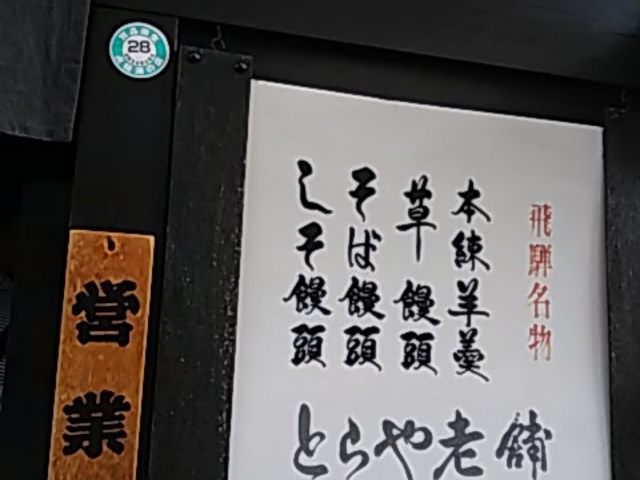 28
営業
飛騨名物
本練羊羹
草饅頭
そば饅頭
しそ饅頭
とらや老舗